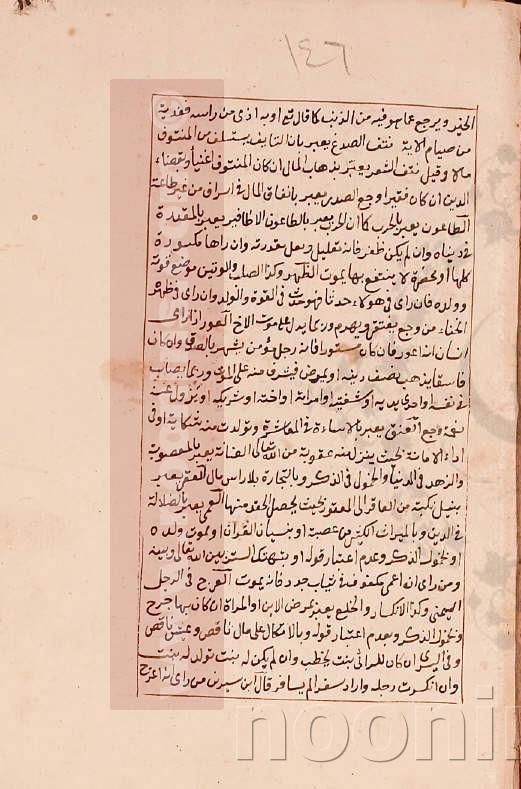 ١٤٦
الخير ويرجع عما هو فيه من الذنب كما قال تع او به اذى من راسه ففدية
من صيام الاية نتف الصدغ يعبر بان النايف يستلف من المنتوف
مالا وقيل نتف الشعر يعبر بذهاب المال ان كان المنتوف اغنيا وقضاء
الدين ان كان فقيرا وجع الصدر يعبر بانفاق المال في اسراف من غير طاعة
الطاعون يعبر بالحرب كما ان الحرب يعبر بالطاعون الاظافير يعبر بالمقدرة
في دنياه وان لم يكن ظفر فانه تقليل وان راها مكسورة
كلها او مخضرة لا ينتفع بها يموت الظهر وكذا الصلب والوتين موضع قوته
وولده فان راى في هولاء حدثا فهو حدث في القوة والولد وان راى في ظهر
انحناء من وجع يفتقر ويهرم وربما يدل على موت الاخ العور اذا راى
انسان انه اعور فان كان مستورا فانه رجل مؤمن يشهر بالصدق وان كان
فاسقا يذهب نصف دينه او يمرض فيشرف منه على الموت وربما يصاب
في نفسه او احدى يديه او شفتيه او امراته او اخته او شريكه او يزول عنه
نعمة وجع العنق يعبر بالاساءة في المعاشرة وتولدت منه شكاية او في
اداء الامانة بحيث ينزل منه عقوبة من الله تعالى العنانة يعبر بالمعصومية
والزهد في الدنيا والخمول في الذكر وبالتجارة بلا راس مال العقر يعبر
بنيل نكبة من العاقر الى المعقور بحيث يحصل الحقد منها العمى يعبر بالضلالة
في الدين وبالميراث الكثير من عصبته او بنسيان القرآن او بموت ولده
او بخمول الذكر وعدم اعتبار قوله او بتهتك الستر بين الله تعالى وبينه
ومن راى انه اعمى مكفوف في ثياب جدد فانه يموت العرج في الرجل
اليمنى وكذا الانكسار والخلع يعبر بمرض الابن او المراة ان كان بها جرح
وبخمول الذكر وبعدم اعتبار قوله وبالاتكال على مال ناقص وعيش ناقص
وفي اليسرى ان كان للرائى بنت يخطب وان لم يكن له بنت تولد له بنت
وان انكسرت رجله واراد سفرا لم يسافر قال ابن سيرين من راى انه اعرج
noonin